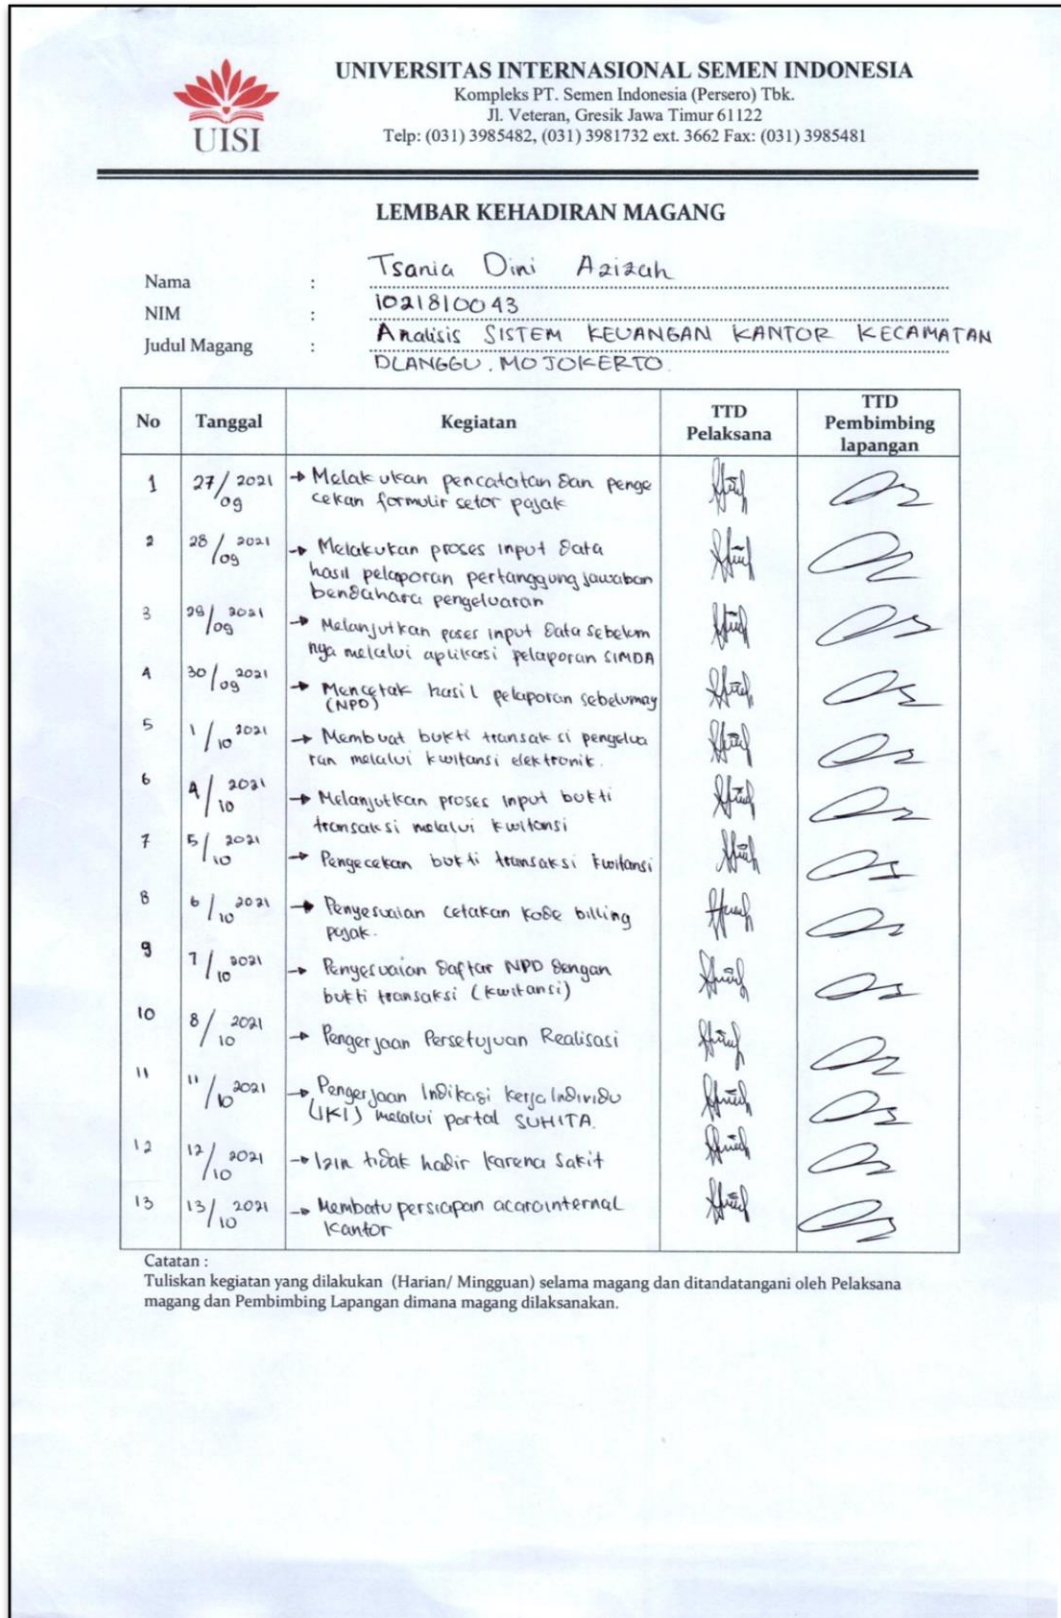 UISI
UNIVERSITAS INTERNASIONAL SEMEN INDONESIA
Kompleks PT. Semen Indonesia (Persero) Tbk.
Jl. Veteran, Gresik Jawa Timur 61122
Telp: (031) 3985482, (031) 3981732 ext. 3662 Fax: (031) 3985481
LEMBAR KEHADIRAN MAGANG
Nama : Tsania Dini Azizah
NIM : 1021810043
Judul Magang : Analisis SISTEM KEUANGAN KANTOR KECAMATAN
DLANGGU. MOJOKERTO.
No Tanggal Kegiatan TTD Pelaksana TTD Pembimbing lapangan
1 27/09 2021 → Melakukan pencatatan dan penge
cekan formulir setor pajak
2 28/09 2021 → Melakukan proses input data
hasil pelaporan pertanggung jawaban
bendahara pengeluaran
3 29/09 2021 → Melanjutkan poses input data sebelum
nya melalui aplikasi pelaporan SIMDA
4 30/09 2021 → Mencetak hasil pelaporan sebelumay
(NPD)
5 1/10 2021 → Membuat bukti transaksi pengelua
ran melalui kwitansi elektronik.
6 4/10 2021 → Melanjutkan proses input bukti
transaksi melalui kwitansi
7 5/10 2021 → Pengecekan bukti transaksi kwitansi
8 6/10 2021 → Penyesuaian cetakan kode billing
pajak.
9 7/10 2021 → Penyesuaian daftar NPD dengan
bukti transaksi (kwitansi)
10 8/10 2021 → Pengerjaan Persetujuan Realisasi
11 11/10 2021 → Pengerjaan Indikasi kerja Individu
(IKI) melalui portal SUHITA.
12 12/10 2021 → Izin tidak hadir karena Sakit
13 13/10 2021 → Membatu persiapan acara internal
kantor
Catatan :
Tuliskan kegiatan yang dilakukan (Harian/ Mingguan) selama magang dan ditandatangani oleh Pelaksana
magang dan Pembimbing Lapangan dimana magang dilaksanakan.